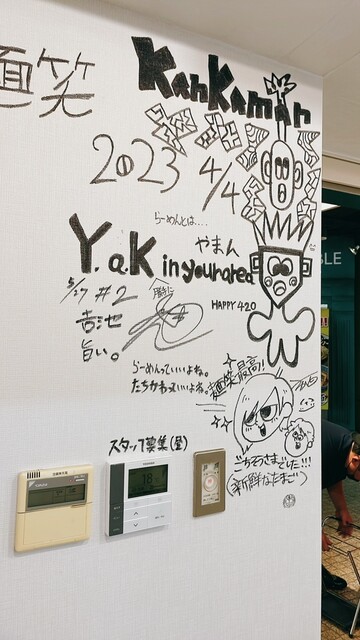 KanKaman
麺笑
2023 4/4
らーめんとは....
やまん
Y.a.K in your area
5/27 #2
吉池
旨い。
HAPPY 420
らーめんっていいよね。
たちかわっていいよね。
麺笑最高!
ごちそうさまでした!!!
(新鮮なたまごい)
スタッフ募集(金)
18